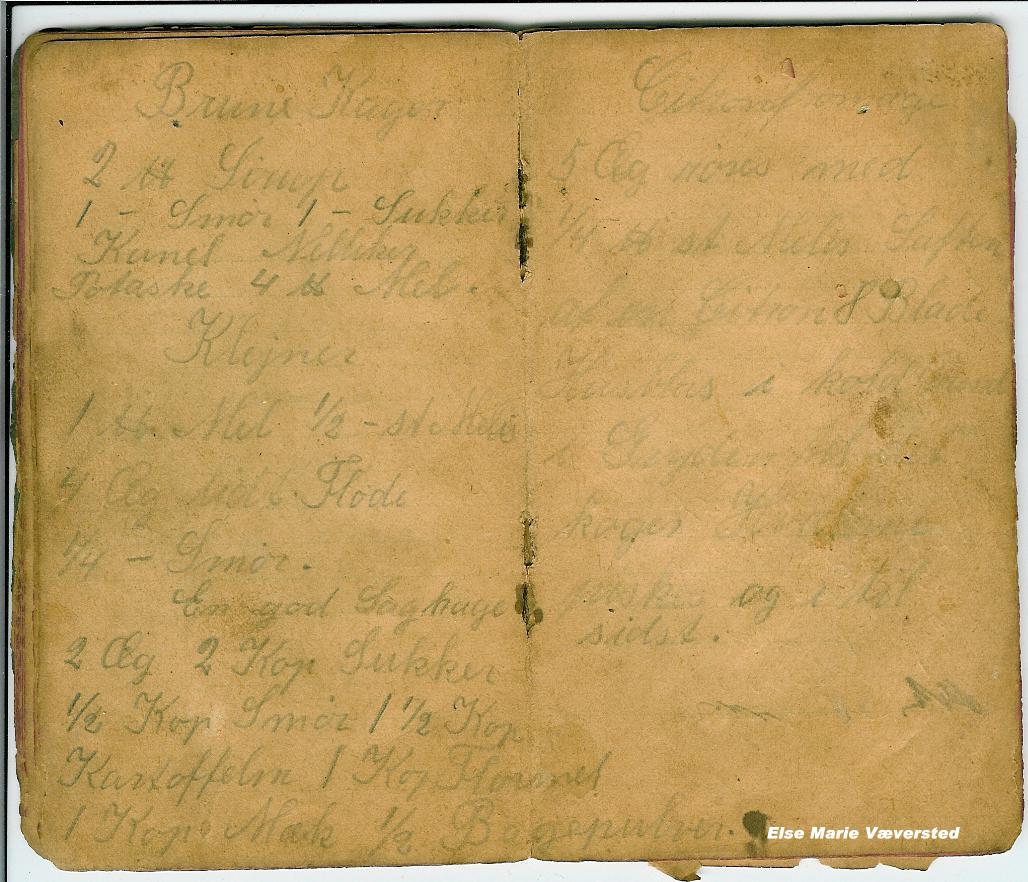 Brune Kager
2 ℔ Sirup
1 - Smør 1 - Sukker
Kanel Nelliker
Potaske 4 ℔ Mel.
Klejner
1 ℔ Mel 1/2 - st Melis
4 Æg lidt Fløde
1/4 - Smør.
En god Sagkage
2 Æg 2 Kop Sukker
1/2 Kop Smør 1 1/2 Kop
Kartoffelm 1 Kop Flormel
1 Kop Mælk 1/2 Bagepulver.
Citronfromage
5 Æg røres med
1/4 ℔ st Melis Saften
af en Citron 8 Blade
Husblas i kold Vand
i Gryden til det
koger
piskes og i til
sidst.
Else Marie Væversted